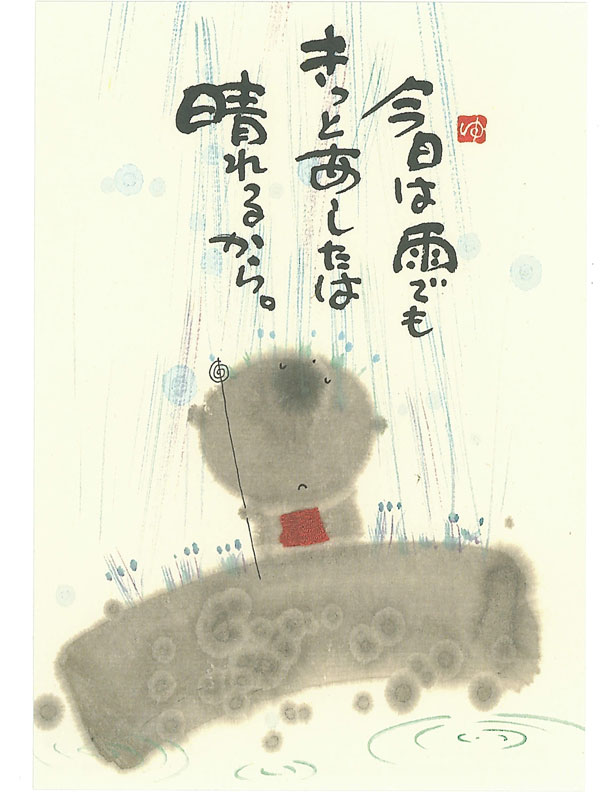 今日は雨でも
きっとあしたは
晴れるから。
ゆ